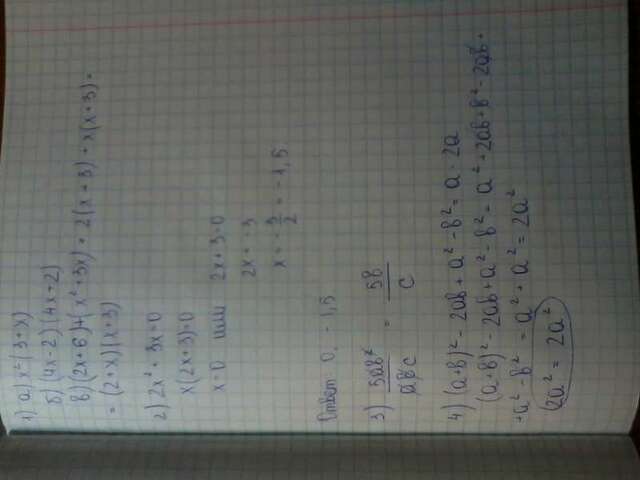 1) а) x²(3+x)
б) (4x-2)(4x+2)
в) (2x+6)+(x²+3x) = 2(x+3)+x(x+3) =
= (2+x)(x+3)
2) 2x²+3x=0
x(2x+3)=0
x=0 или 2x+3=0
2x=-3
x=-3/2=-1,5
Ответ: 0, -1,5
3) 5ab²/abc = 5b/c
4) (a+b)²-2ab+a²-b²=a·2a
(a+b)²-2ab+a²-b²=a²+2ab+b²-2ab+
+a²-b²=a²+a²=2a²
2a²=2a²